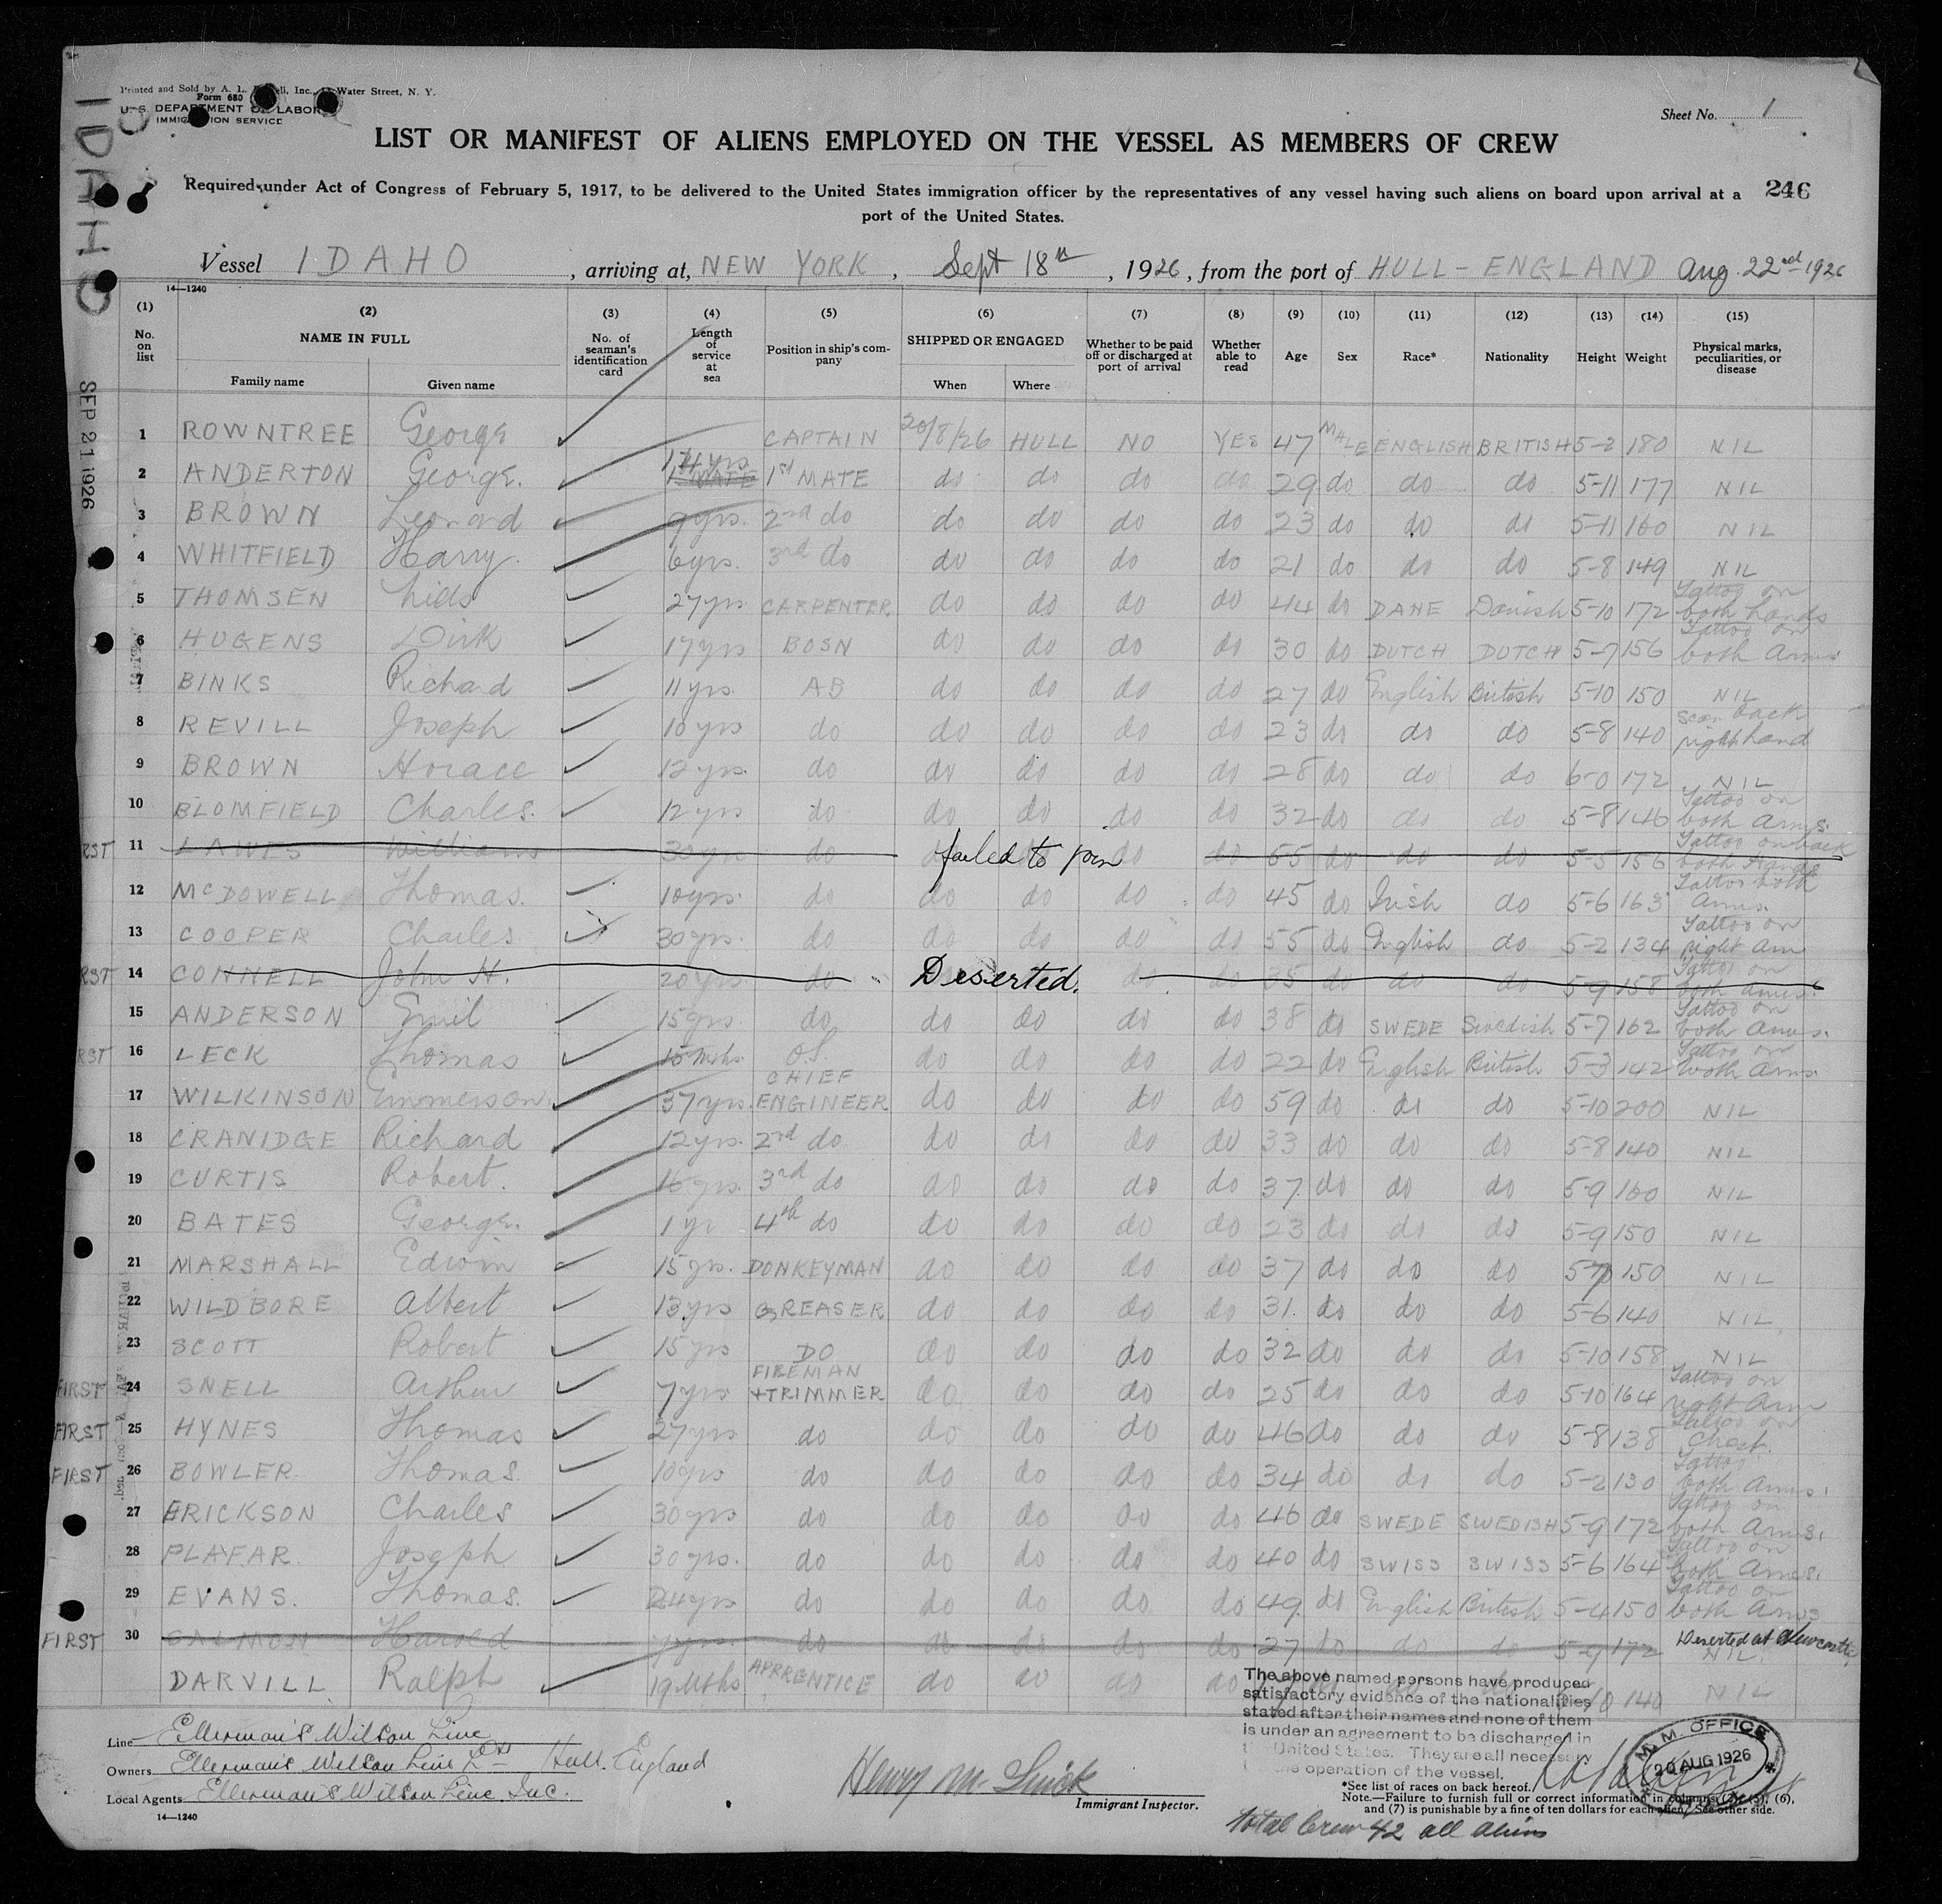 Printed and Sold by A. L. Water Street, N. Y.
Form 680
U. S. DEPARTMENT OF LABOR
IMMIGRATION SERVICE
Sheet No. 1
LIST OR MANIFEST OF ALIENS EMPLOYED ON THE VESSEL AS MEMBERS OF CREW
Required under Act of Congress of February 5, 1917, to be delivered to the United States immigration officer by the representatives of any vessel having such aliens on board upon arrival at a
port of the United States.
246
IDAHO
SEP 21 1926
Vessel IDAHO, arriving at, NEW YORK, Sept 18th, 1926, from the port of HULL - ENGLAND Aug. 22nd 1926
14—1240
(1) No. on list (2) NAME IN FULL Family name Given name (3) No. of seaman's identification card (4) Length of service at sea (5) Position in ship's company (6) SHIPPED OR ENGAGED When Where (7) Whether to be paid off or discharged at port of arrival (8) Whether able to read (9) Age (10) Sex (11) Race* (12) Nationality (13) Height (14) Weight (15) Physical marks, peculiarities, or disease
1 ROWNTREE George CAPTAIN 20/8/26 HULL NO YES 47 MALE ENGLISH BRITISH 5-2 180 NIL
2 ANDERTON George. 14yrs 1st MATE do do do do 29 do do do 5-11 177 NIL
3 BROWN Leonard 9yrs. 2nd do do do do do 23 do do do 5-11 160 NIL
4 WHITFIELD Harry. 6yrs. 3rd do do do do do 21 do do do 5-8 149 NIL
5 THOMSEN 27yrs CARPENTER do do do do 44 do DANE Danish 5-10 172 Tattoo on both hands
6 HUGENS Dirk 17yrs BOSN do do do do 30 do DUTCH DUTCH 5-7 156 Tattoo on both Arms
7 BINKS Richard 11yrs. AB do do do do 27 do English British 5-10 150 NIL
8 REVILL Joseph 10yrs do do do do do 23 do do do 5-8 140 Scar back right hand
9 BROWN Horace 12yrs. do do do do do 28 do do do 6-0 172 NIL
10 BLOMFIELD Charles. 12yrs do do do do do 32 do do do 5-8 146 Tattoo on both Arms.
RST 11 LAWES William 30yrs do failed to join do do 55 do do do 5-5 156 Tattoo on back both hands
12 McDOWELL Thomas. 10yrs. do do do do do 45 do Irish do 5-6 163 Tattoo both Arms.
13 COOPER Charles 30yrs. do do do do do 55 do English do 5-2 134 Tattoo on right arm
RST 14 CONNELL John H. 20yrs. do Deserted. do do 35 do do do 5-9 158 Tattoo on both arms.
15 ANDERSON Emil 15yrs. do do do do do 38 do SWEDE Swedish 5-7 162 Tattoo on both Arms.
RST 16 LECK Thomas O.S. do do do do 22 do English British 5-3 142 Tattoo on both Arms.
17 WILKINSON Emmerson. 37yrs. CHIEF ENGINEER do do do do 59 do do do 5-10 200 NIL
18 CRANIDGE Richard 12yrs. 2nd do do do do do 33 do do do 5-8 140 NIL
19 CURTIS Robert. 16yrs. 3rd do do do do do 37. do do do 5-9 160 NIL
20 BATES George. 1yr 4th do do do do do 23 do do do 5-9 150 NIL
21 MARSHALL Edwin 15yrs. DONKEYMAN do do do do 37 do do do 150 NIL
22 WILDBORE Albert 13yrs GREASER do do do do 31. do do do 5-6 140 NIL
23 SCOTT Robert 15yrs DO do do do do 32 do do do 5-10 158 NIL
FIRST 24 SNELL Arthur 7yrs FIREMAN + TRIMMER do do do do 25 do do do 5-10 164 Tattoo on right Arm
FIRST 25 HYNES Thomas 27yrs do do do do do 46 do do do 5-8 138 Tattoo on Chest.
FIRST 26 BOWLER. Thomas. 10yrs do do do do do 34 do do do 5-2 130 Tattoo both Arms.
27 ERICKSON Charles 30yrs do do do do do 46 do SWEDE SWEDISH 5-9 172 Tattoo on both Arms.
28 PLAFAR. Joseph 30yrs. do do do do do 40 do SWISS SWISS 5-6 164 Tattoo on both Arms.
29 EVANS. Thomas. 24yrs do do do do do 49. do English British 5-4 150 Tattoo on both Arms
FIRST 30 SALMON Harold 7yrs. do do do do do 27 do do do 5-9 172 NIL Deserted at Newcastle
DARVILL Ralph 19 Mths APPRENTICE do do do do 140 NIL
The above named persons have produced
satisfactory evidence of the nationalities
stated after their names and none of them
is under an agreement to be discharged in
United States. They are all necessary
the operation of the vessel.
Line Ellerman's Wilson Line
Owners Ellerman's Wilson Line Ltd Hull. England
Local Agents Ellerman's Wilson Line Inc.
14—1240
Immigrant Inspector.
M. M. OFFICE
20 AUG 1926
*See list of races on back hereof.
Note.—Failure to furnish full or correct information in columns (5), (6),
and (7) is punishable by a fine of ten dollars for each alien. See other side.
Total Crew 42 all aliens